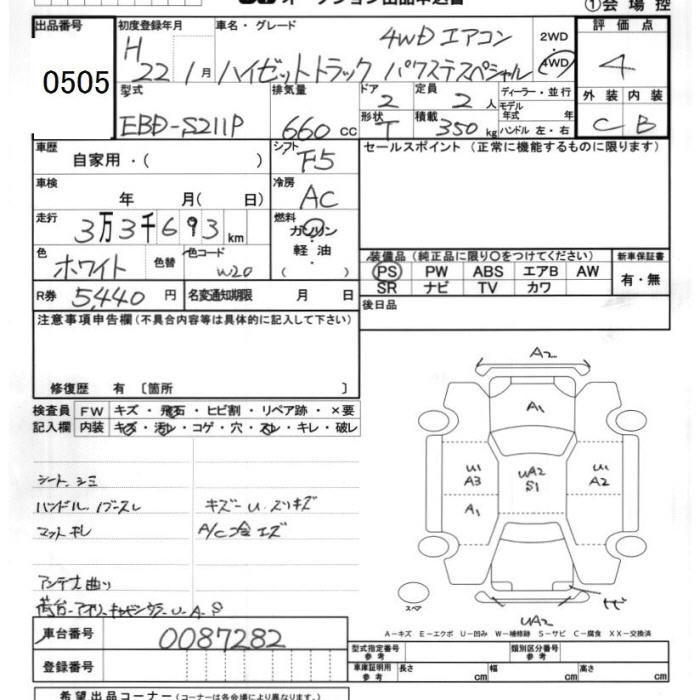 ①会場控
出品番号
0505
初度登録年月
H 22 1月
車名・グレード
4WD エアコン
ハイゼットトラック パワステスペシャル
2WD
4WD
評価点
4
型式
EBD-S211P
排気量
660 cc
ドア
2
形状
T
定員
2人
積載
350 kg
ディーラー・並行
モデル
年式 年
ハンドル 左・右
外装 内装
C B
車歴
自家用・( )
シフト
F5
セールスポイント (正常に機能するものに限ります)
車検
年 月( 日)
冷房
AC
走行
3万3千693 km
燃料
ガソリン
・
軽油
・
( )
色
ホワイト
色替
色コード
W20
装備品 (純正品に限り〇をつけてください)
PS PW ABS エアB AW
SR ナビ TV カワ
新車保証書
有・無
R券 5,440 円
名変通知期限 月 日
後日品
注意事項申告欄 (不具合内容等は具体的に記入して下さい)
修復歴 有 〔箇所 〕
検査員
記入欄
FW キズ・飛石・ヒビ割・リペア跡・×要
内装 キズ・汚レ・コゲ・穴・スレ・キレ・破レ
シート、シミ
キズー U、スリキズ
A/C 冷
アンテナ曲り
A2
A1
U1
A3
A1
UA2
S1
U1
A2
UA2
スペア
A−キズ E−エクボ U−凹み W−補修跡 S−サビ C−腐食 XX−交換済
車台番号 0087282
登録番号
型式指定番号
参考
類別区分番号
参考
車庫証明用
参考
長さ cm 幅 cm 高さ cm
希望出品コーナー (コーナーは各会場により異なります。)